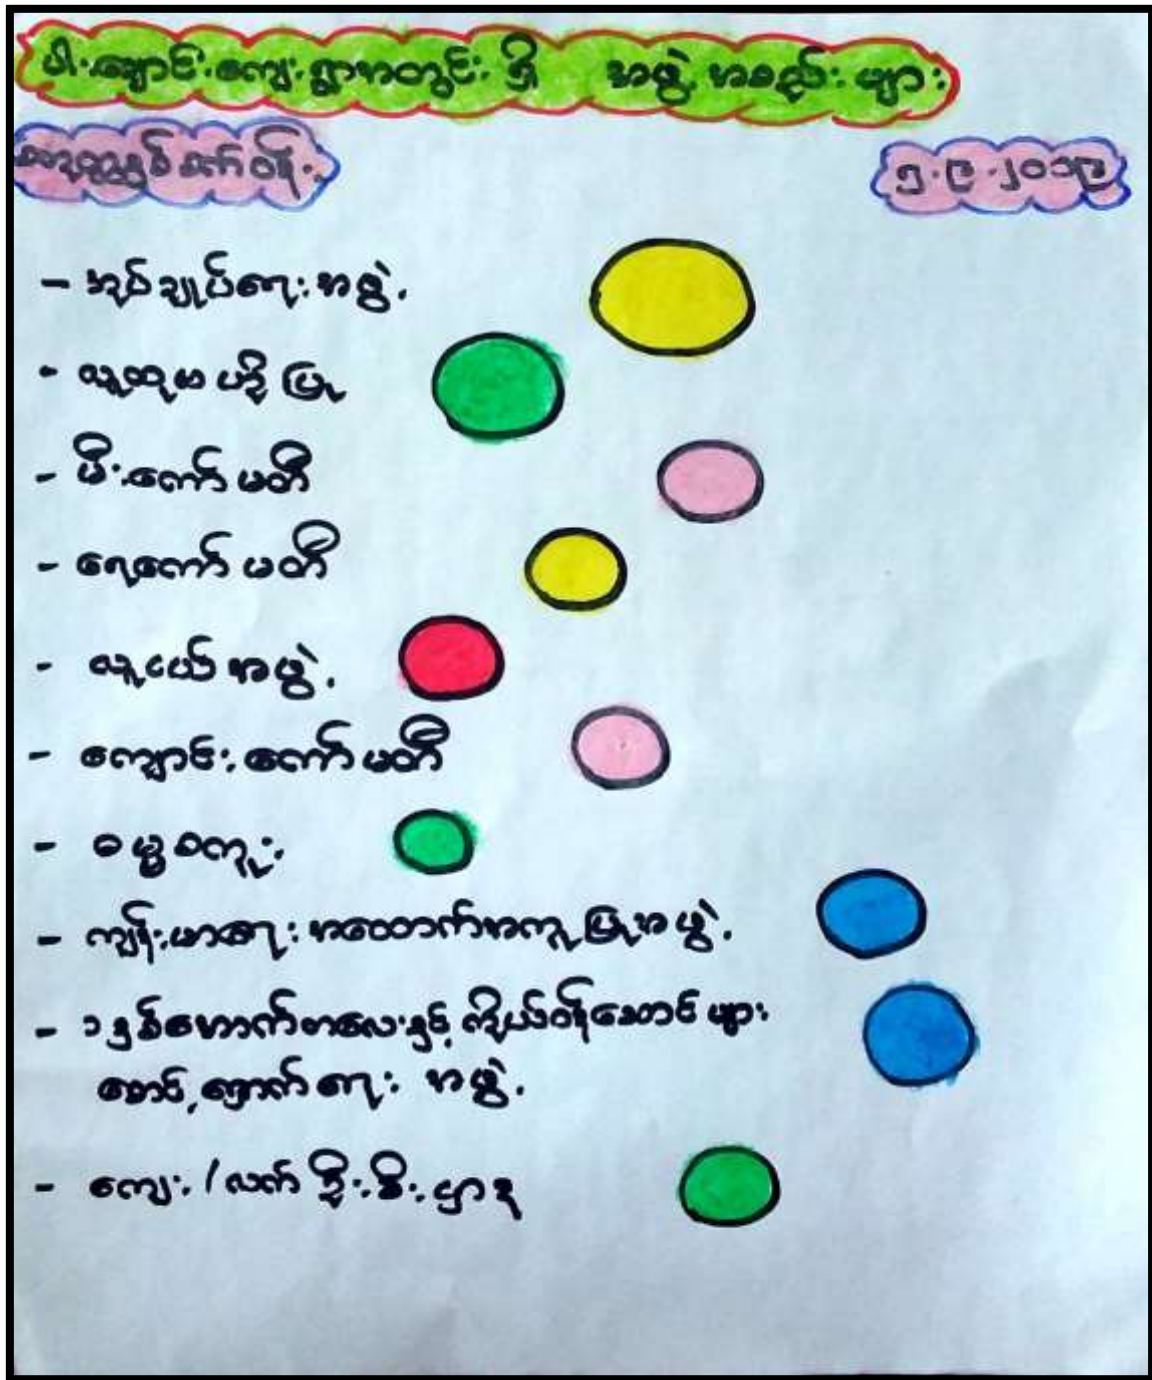 ဝါးချောင်းကျေးရွာအတွင်းရှိ အဖွဲ့အစည်းများ
၅.၉.၂၀၁၉
- အုပ်ချုပ်ရေးအဖွဲ့
- လူထုဗဟိုပြု
- မီးကော်မတီ
- ရေကော်မတီ
- လူငယ်အဖွဲ့
- ကျောင်းကော်မတီ
- ဓမ္မစကူး
- ကျန်းမာရေးအထောက်အကူပြုအဖွဲ့
- ၁နှစ်အောက်ကလေးနှင့်ကိုယ်ဝန်ဆောင်များ
စောင့်ရှောက်ရေးအဖွဲ့
- ကျေး/လက်ဦးစီးဌာန